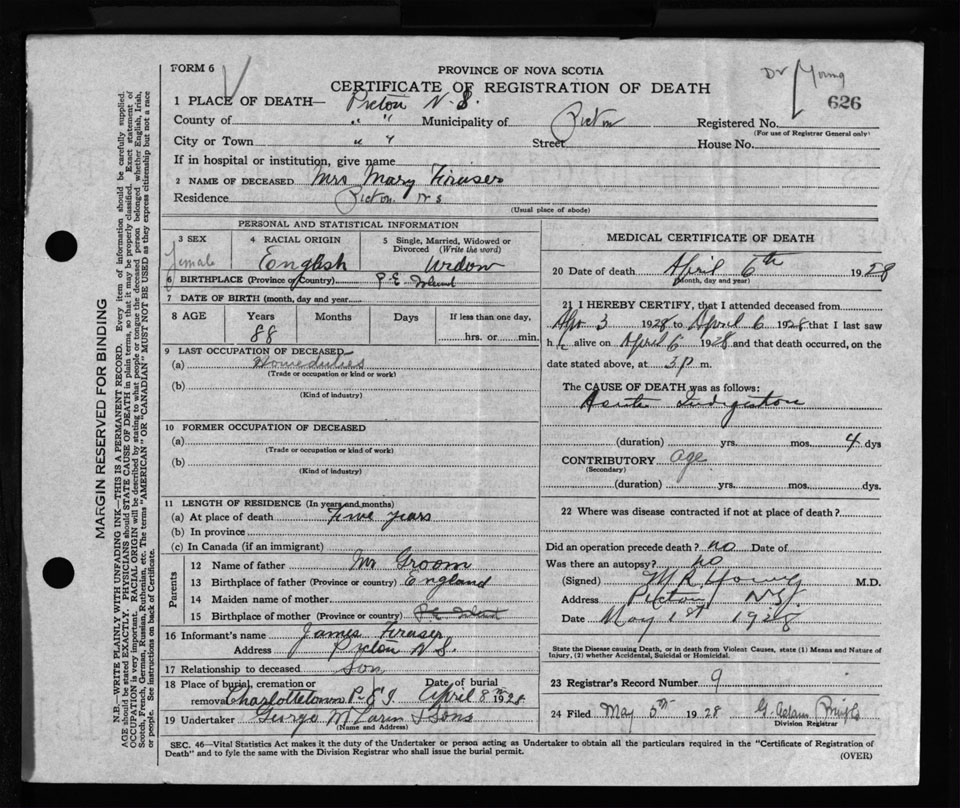 FORM 6
PROVINCE OF NOVA SCOTIA
Dr Young
CERTIFICATE OF REGISTRATION OF DEATH
626
1 PLACE OF DEATH— Pictou N.S.
County of " " Municipality of Pictou Registered No.
(For use of Registrar General only)
City or Town " " Street House No.
If in hospital or institution, give name
2 NAME OF DECEASED Mrs Mary Fraser
Residence Pictou N S
(Usual place of abode)
PERSONAL AND STATISTICAL INFORMATION
3 SEX
female
4 RACIAL ORIGIN
English
5 Single, Married, Widowed or Divorced (Write the word)
Widow
6 BIRTHPLACE (Province or Country) P.E. Island
7 DATE OF BIRTH (month, day and year)
8 AGE Years Months Days If less than one day,
88 hrs. or min.
9 LAST OCCUPATION OF DECEASED—
(a) Homeduties
(Trade or occupation or kind or work)
(b)
(Kind of industry)
10 FORMER OCCUPATION OF DECEASED
(a)
(Trade or occupation or kind or work)
(b)
(Kind of industry)
11 LENGTH OF RESIDENCE (In years and months)
(a) At place of death Five years
(b) In province
(c) In Canada (if an immigrant)
Parents
12 Name of father Mr Groom
13 Birthplace of father (Province or country) England
14 Maiden name of mother
15 Birthplace of mother (Province or country) P.E. Island
16 Informant's name James Fraser
Address Pictou N.S.
17 Relationship to deceased Son
18 Place of burial, cremation or removal Charlottetown P.E.I. Date of burial April 8th 1928
19 Undertaker & Sons
(Name and Address)
MEDICAL CERTIFICATE OF DEATH
20 Date of death April 6th 1928
(Month, day and year)
21 I HEREBY CERTIFY, that I attended deceased from
Apr 3 1928 to April 6 1928 that I last saw
h alive on April 6 1928 and that death occurred, on the
date stated above, at 3 P m.
The CAUSE OF DEATH was as follows:
Acute Indigestion
(duration) yrs. mos. 4 dys
CONTRIBUTORY Age
(Secondary)
(duration) yrs. mos. dys.
22 Where was disease contracted if not at place of death?
Did an operation precede death? no Date of
Was there an autopsy? no
(Signed) M R Young M.D.
Address Pictou NS
Date May 1st 1928
State the Disease causing Death, or in death from Violent Causes, state (1) Means and Nature of Injury, (2) whether Accidental, Suicidal or Homicidal.
23 Registrar's Record Number 9
24 Filed May 5th 1928 G. Adam
Division Registrar
SEC. 46—Vital Statistics Act makes it the duty of the Undertaker or person acting as Undertaker to obtain all the particulars required in the "Certificate of Registration of
Death" and to fyle the same with the Division Registrar who shall issue the burial permit.
(OVER)
MARGIN RESERVED FOR BINDING
N.B.—WRITE PLAINLY WITH UNFADING INK—THIS IS A PERMANENT RECORD. Every item of information should be carefully supplied.
AGE should be stated EXACTLY. PHYSICIANS should STATE CAUSE OF DEATH in plain terms, so that it may be properly classified. Exact statement of
OCCUPATION is very important. RACIAL ORIGIN will be described by stating to what people or tongue the deceased person belonged whether English, Irish,
Scotch, French, German, Russian, Ruthenian, etc. The terms "AMERICAN" OR "CANADIAN" MUST NOT BE USED as they express citizenship but not a race
or people. See instructions on back of Certificate.